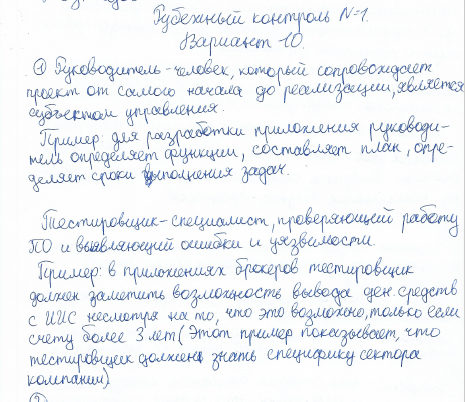 Рубежный контроль №1.
Вариант 10.
① Руководитель - человек, который сопровождает
проект от самого начала до реализации, является
субъектом управления.
Пример: для разработки приложения руководи-
тель определяет функции, составляет план, опре-
деляет сроки выполнения задач.
Тестировщик - специалист, проверяющий работу
ПО и выявляющий ошибки и уязвимости.
Пример: в приложениях брокеров тестировщик
должен заметить возможность вывода ден. средств
с ИИС несмотря на то, что это возможно, только если
счету более 3 лет (Этот пример показывает, что
тестировщик должен знать специфику сектора
компании)